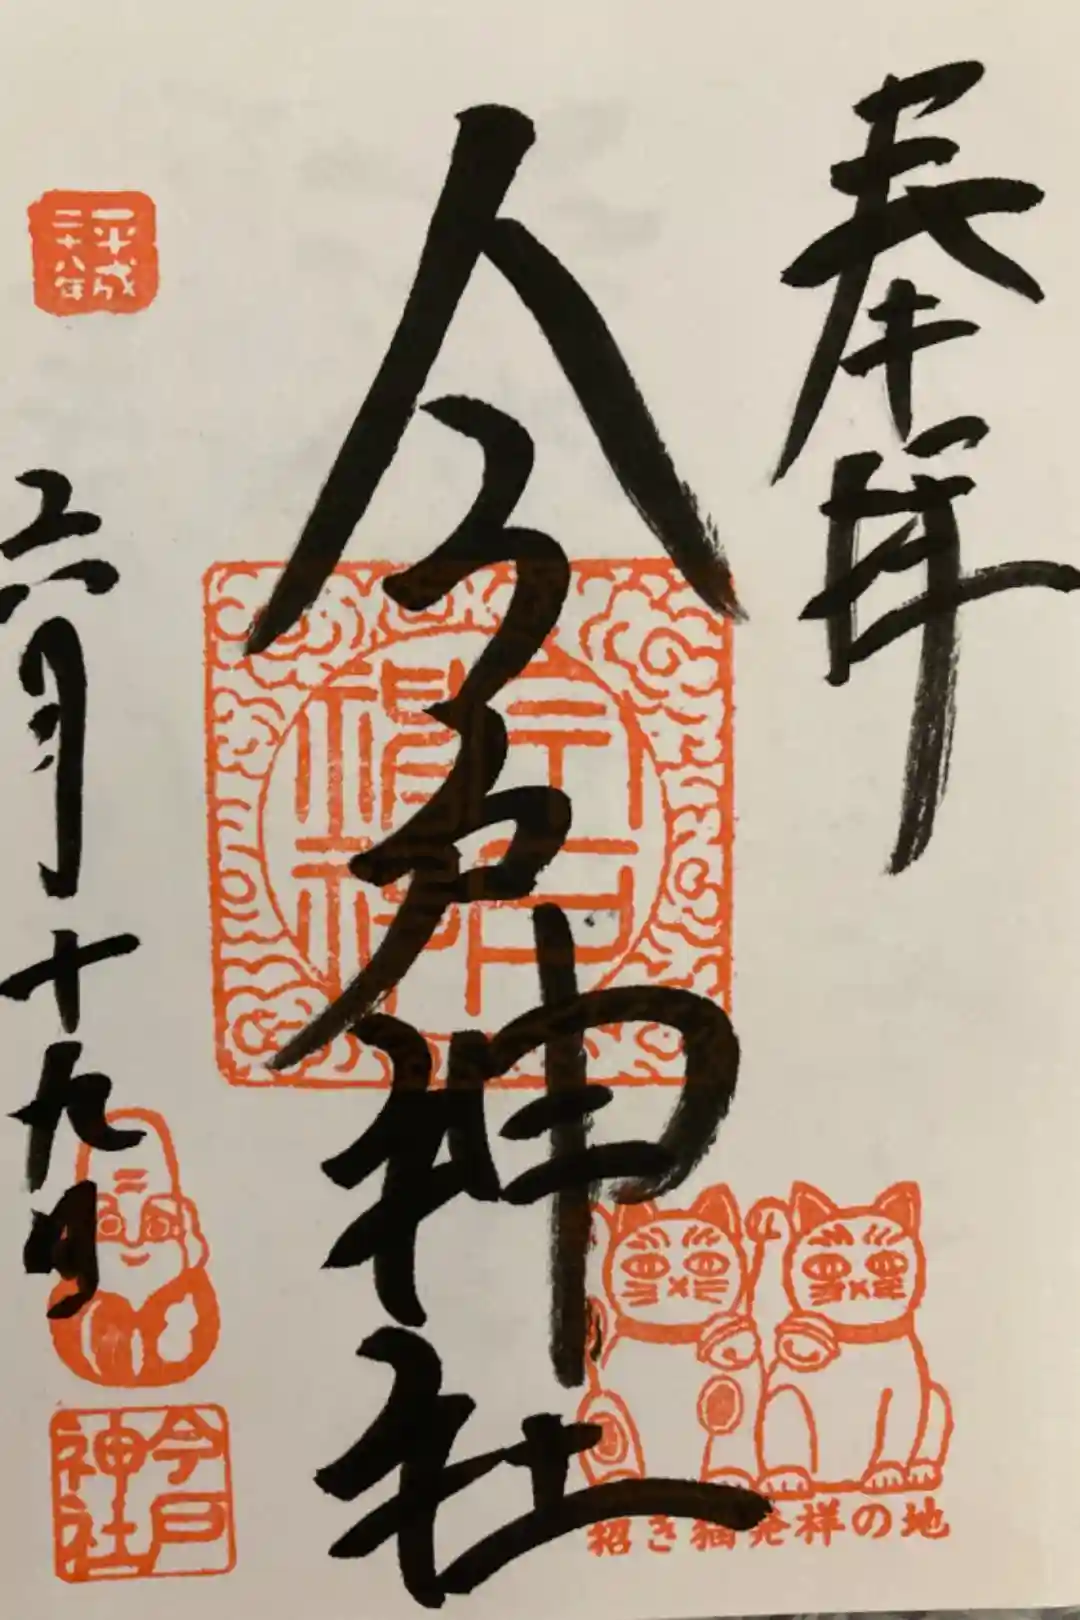 奉拝
今戸神社
今戸神社
招き猫発祥の地
平成
二十八年
六月十九日
今戸
神社